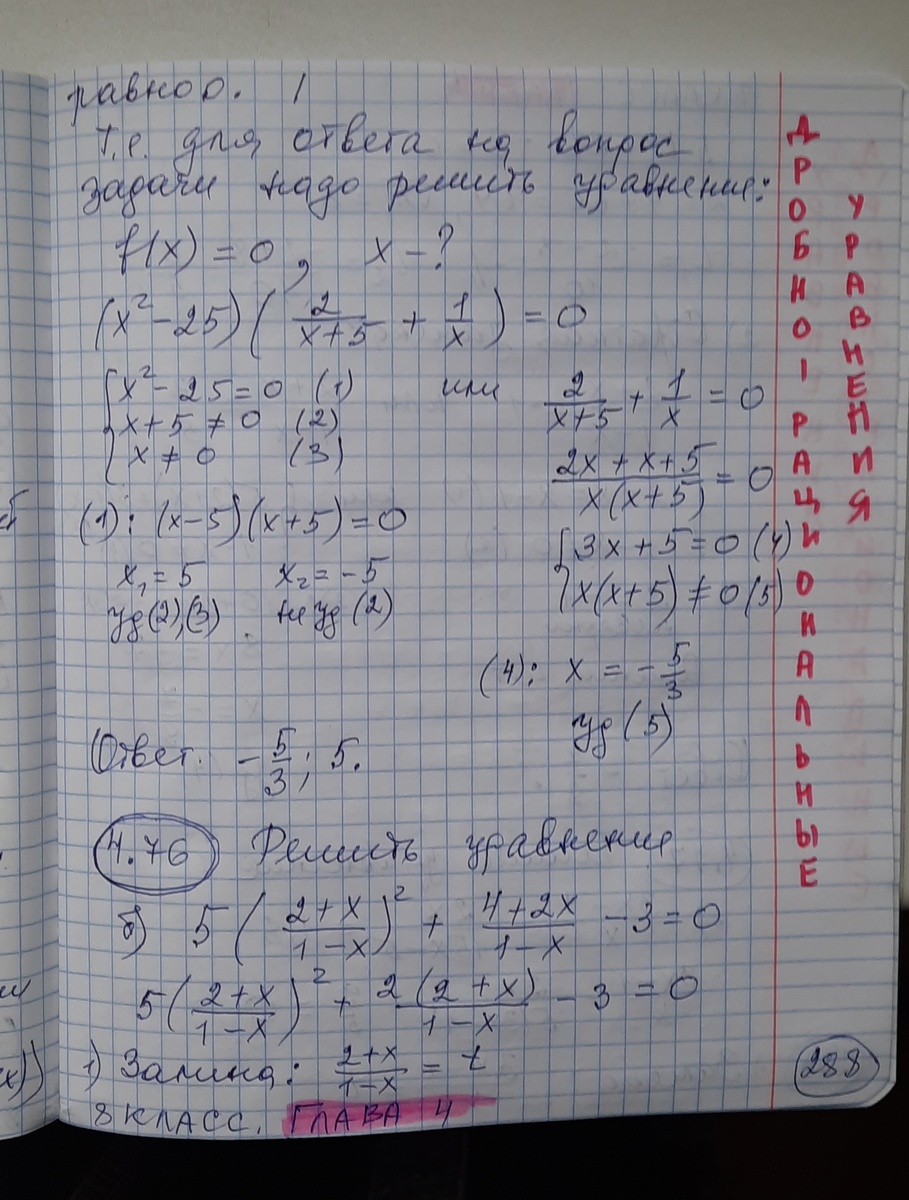 равно 0.
Т.е. для ответа на вопрос
задачи надо решить уравнение:
f(x) = 0, x - ?
(x² - 25)(2/(x+5) + 1/x) = 0
{x² - 25 = 0 (1)
x + 5 ≠ 0 (2)
x ≠ 0 (3)
или
2/(x+5) + 1/x = 0
(2x + x + 5)/(x(x+5)) = 0
{3x + 5 = 0 (4)
x(x+5) ≠ 0 (5)
(1): (x-5)(x+5) = 0
x₁ = 5 x₂ = -5
уд (2),(3) не уд (2)
(4): x = -5/3
уд (5)
Ответ. -5/3; 5.
4.76 Решить уравнение
б) 5((2+x)/(1-x))² + (4+2x)/(1-x) - 3 = 0
5((2+x)/(1-x))² + 2(2+x)/(1-x) - 3 = 0
1) Замена: (2+x)/(1-x) = t
8 КЛАСС. ГЛАВА 4
ДРОБНО РАЦИОНАЛЬНЫЕ
УРАВНЕНИЯ
288